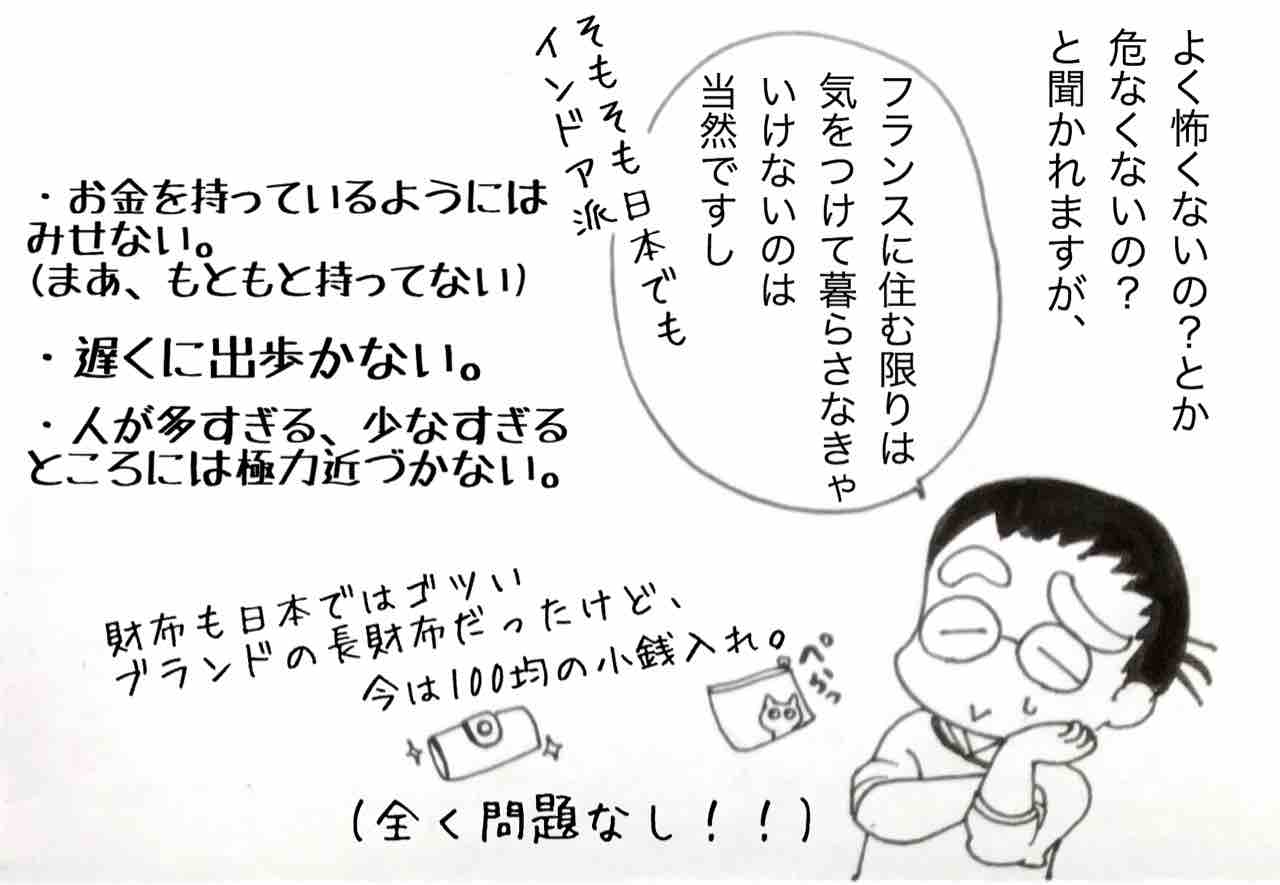 よく怖くないの？とか
危なくないの？
と聞かれますが、
フランスに住む限りは
気をつけて暮らさなきゃ
いけないのは
当然ですし
そもそも日本でも
インドア派
・お金を持っているようには
みせない。
(まあ、もともと持ってない)
・遅くに出歩かない。
・人が多すぎる、少なすぎる
ところには極力近づかない。
財布も日本ではゴツい
ブランドの長財布だったけど、
今は100均の小銭入れ。
ペらっ
(全く問題なし！！)